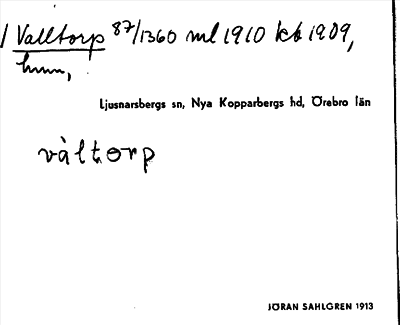 / Valltorp 87/1360 ml 1910 kb 1909,
hmn,
Ljusnarsbergs sn, Nya Kopparbergs hd, Örebro län
våltorp
JÖRAN SAHLGREN 1913